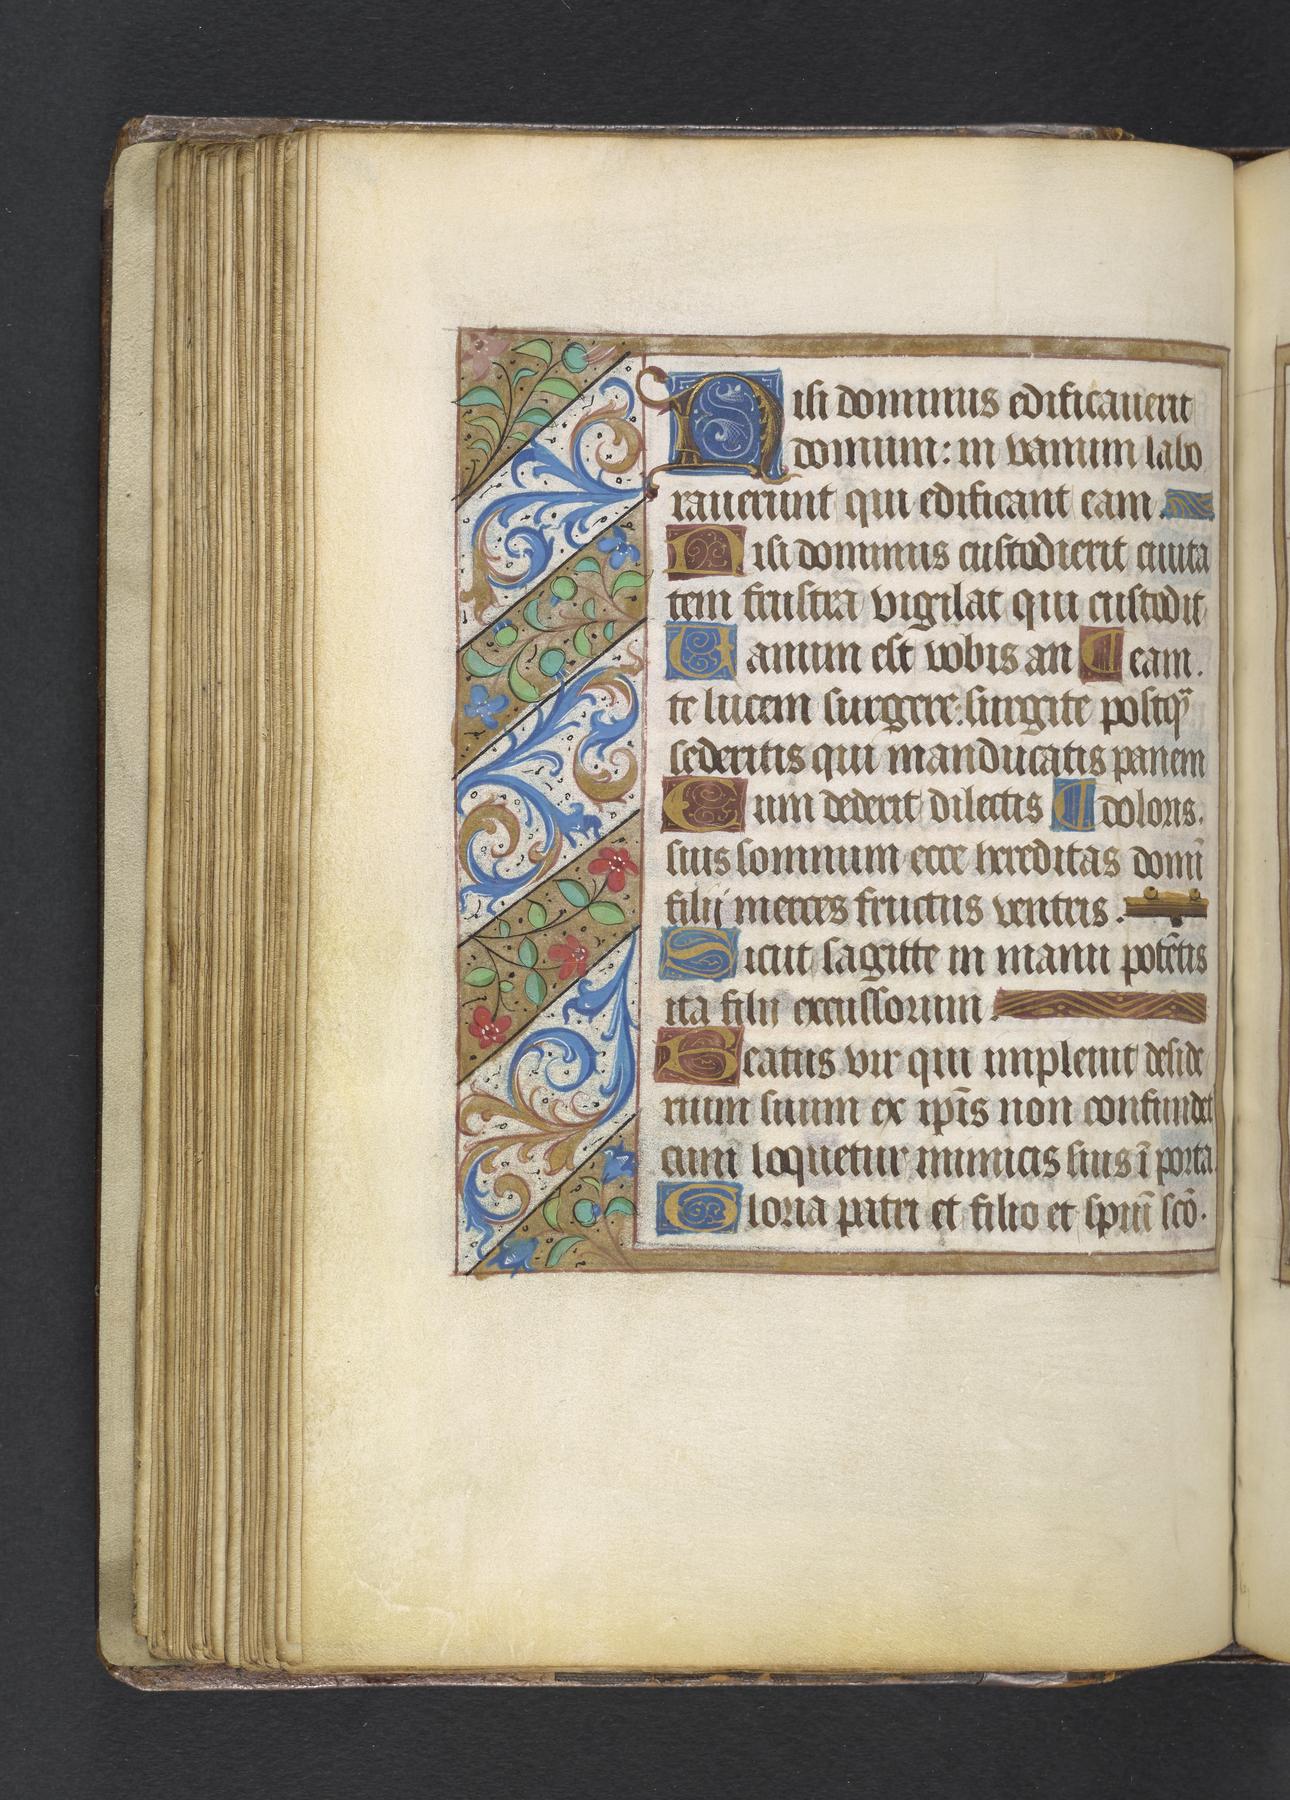 Nisi dominus edificauerit
domum: in vanum labo
rauerunt qui edificant eam.
Nisi dominus custodierit ciuita
tem frustra vigilat qui custodit
Uanum est vobis an ¶ eam.
te lucem surgere: surgite postq̃
sederitis qui manducatis panem
Cum dederit dilectis ¶ doloris.
suis somnum ecce hereditas domī
filij merces fructus ventris.
Sicut sagitte in manu potētis
ita filii excussorum.
Beatus vir qui impleuit deside
rium suum ex ip̄is non confundet
cum loquetur inimicis suis ī porta
Gloria patri et filio et spiuī scō.